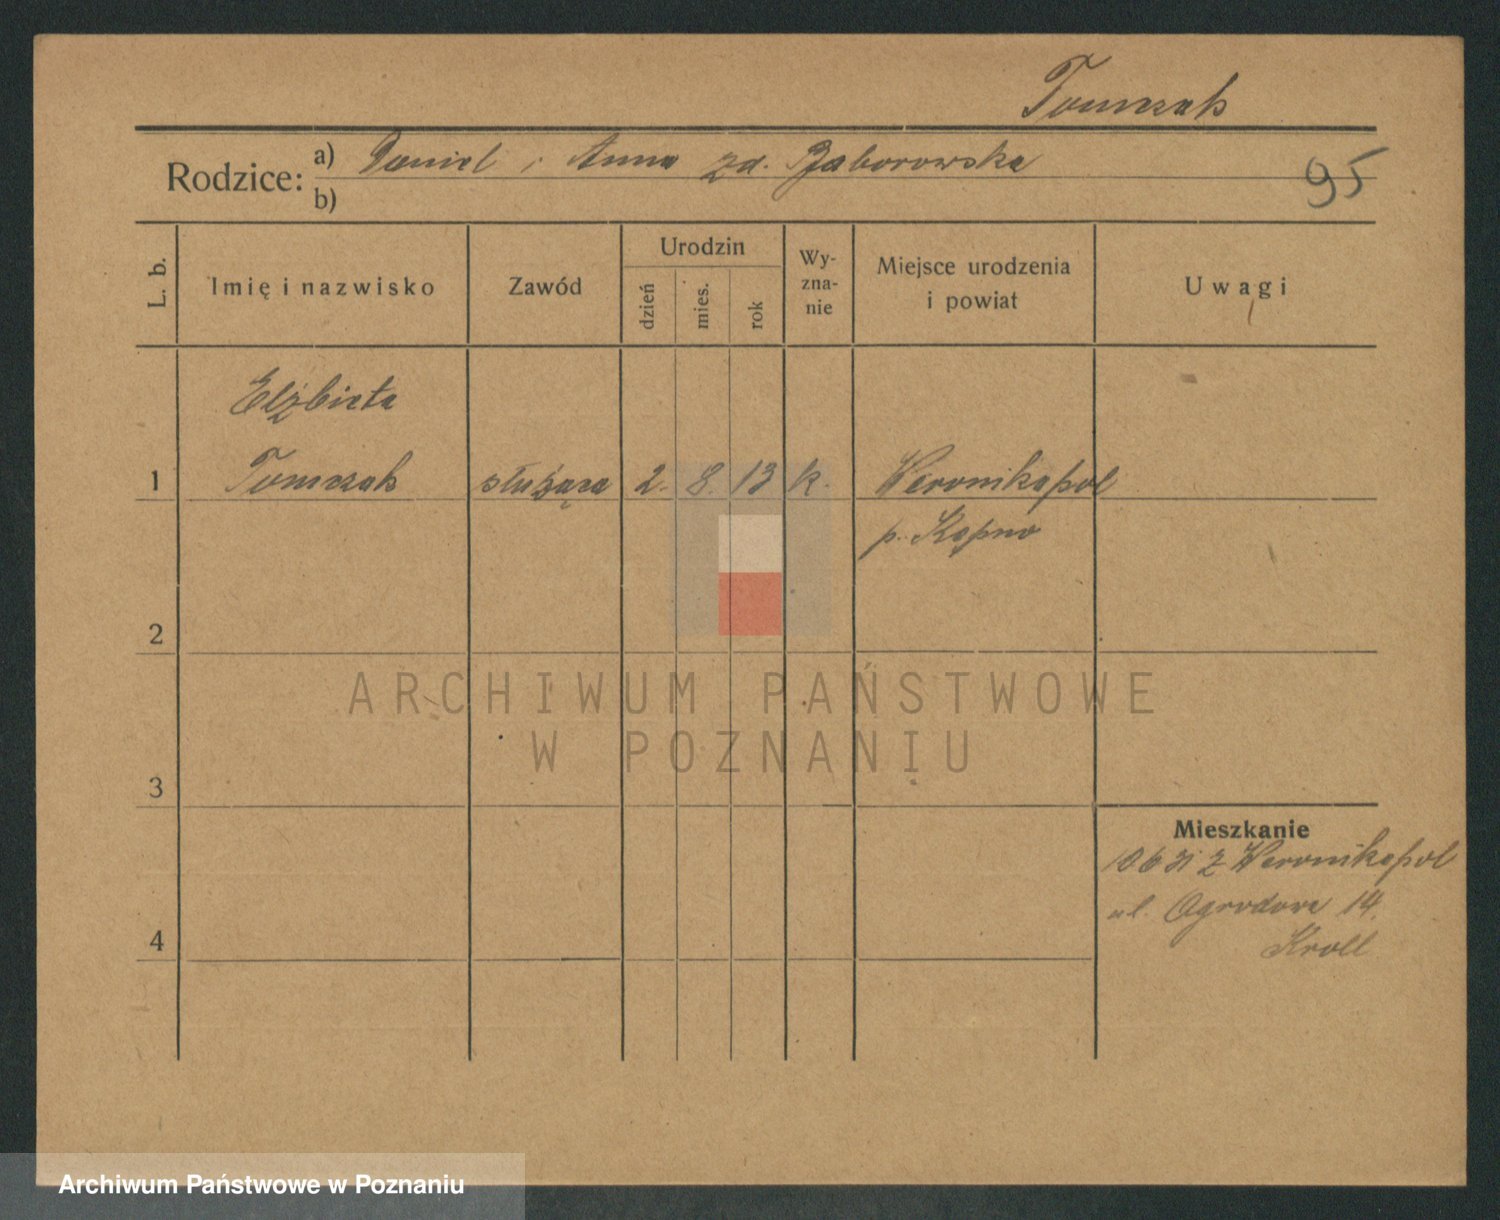 Tomczak
Rodzice: a) Daniel i Anna zd. Baborowska
b)
95
L. b.
Imię i nazwisko
Zawód
Urodzin
dzień
mies.
rok
Wy-
zna-
nie
Miejsce urodzenia
i powiat
Uwagi
Elżbieta
1 Tomczak służąca 2. 8. 13 k. Weronikopol
p. Kępno
2
3
4
Mieszkanie
z Weronikopol
ul. Ogrodowa 14.
Kroll
ARCHIWUM PAŃSTWOWE
W POZNANIU
Archiwum Państwowe w Poznaniu